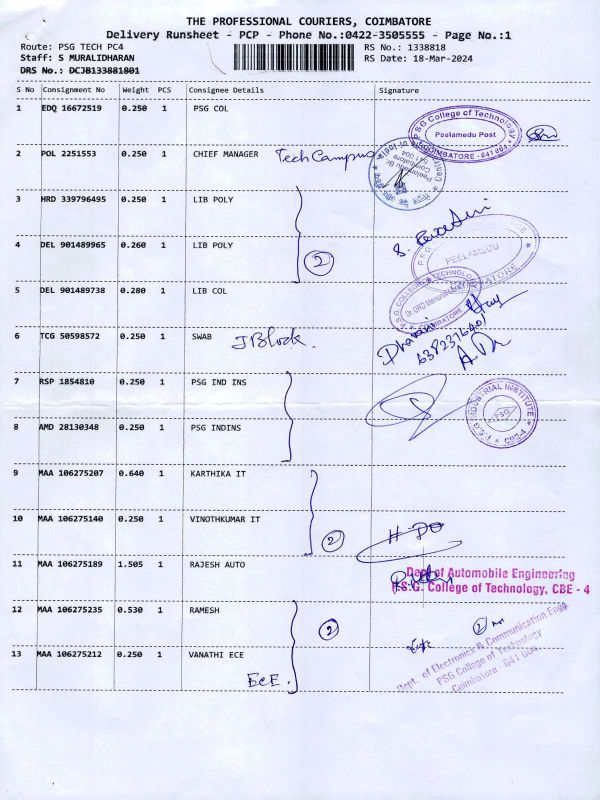 THE PROFESSIONAL COURIERS, COIMBATORE
Delivery Runsheet - PCP - Phone No.:0422-3505555 - Page No.:1
Route: PSG TECH PC4
RS No.: 1338818
Staff: S MURALIDHARAN
RS Date: 18-Mar-2024
DRS No.: DCJB133881801
S No Consignment No Weight PCS Consignee Details Signature
1 EDQ 16672519 0.250 1 PSG COL
P.S.G College of Technology
Peelamedu Post
COIMBATORE - 641 004
2 POL 2251553 0.250 1 CHIEF MANAGER Tech Campus
3 HRD 339796495 0.250 1 LIB POLY
4 DEL 901489965 0.260 1 LIB POLY
2
PEELAMEDU
5 DEL 901489738 0.280 1 LIB COL
P.S.G. COLLEGE OF TECHNOLOGY
COIMBATORE
6 TCG 50598572 0.250 1 SWAB J Block.
Dharani
6382376401
7 RSP 1854810 0.250 1 PSG IND INS
P.S.G. INDUSTRIAL INSTITUTE
PSG
CBE-4
8 AMD 28130348 0.250 1 PSG INDINS
9 MAA 106275207 0.640 1 KARTHIKA IT
10 MAA 106275140 0.250 1 VINOTHKUMAR IT
2
11 MAA 106275189 1.505 1 RAJESH AUTO
Dept of Automobile Engineering
P.S.G. College of Technology, CBE - 4
12 MAA 106275235 0.530 1 RAMESH
2
2
13 MAA 106275212 0.250 1 VANATHI ECE
ECE.
Dept. of Electronics & Communication Engg.
PSG College of Technology
Coimbatore - 641 004